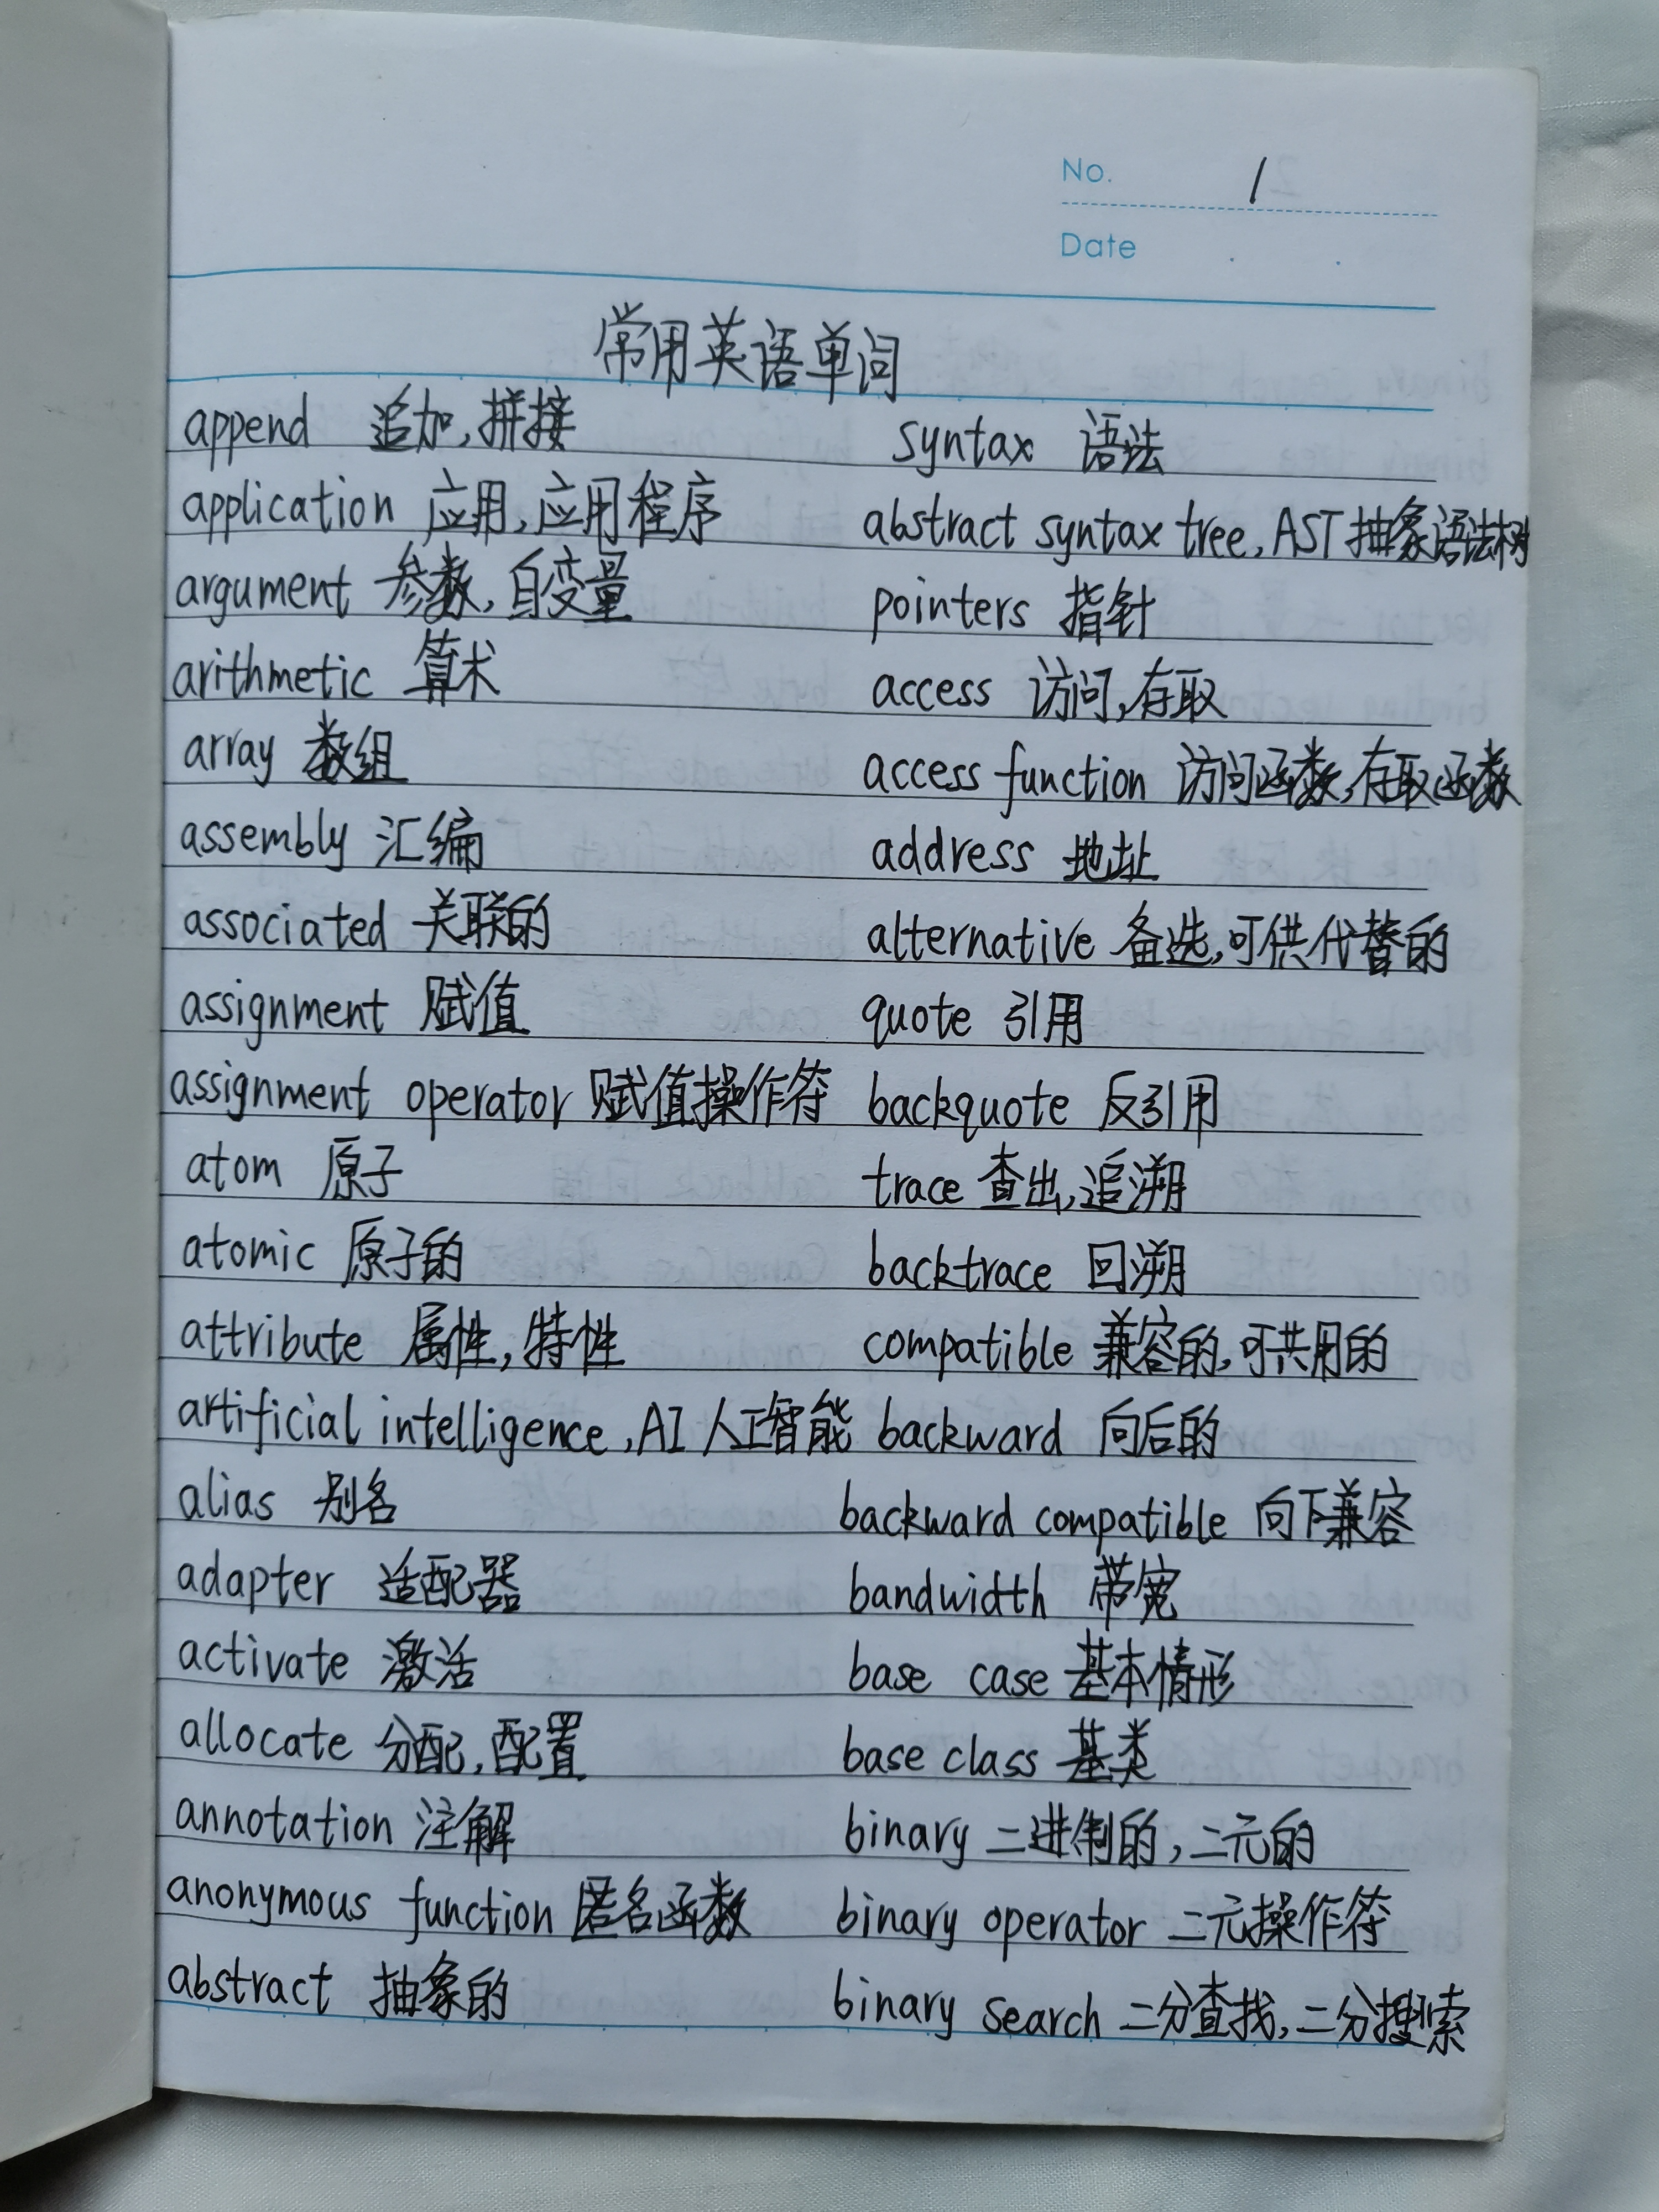 No. 1
Date
常用英语单词
append 追加,拼接
application 应用,应用程序
argument 参数,自变量
arithmetic 算术
array 数组
assembly 汇编
associated 关联的
assignment 赋值
assignment operator 赋值操作符
atom 原子
atomic 原子的
attribute 属性,特性
artificial intelligence,AI 人工智能
alias 别名
adapter 适配器
activate 激活
allocate 分配,配置
annotation 注解
anonymous function 匿名函数
abstract 抽象的
syntax 语法
abstract syntax tree,AST 抽象语法树
pointers 指针
access 访问,存取
access function 访问函数,存取函数
address 地址
alternative 备选,可供代替的
quote 引用
backquote 反引用
trace 查出,追溯
backtrace 回溯
compatible 兼容的,可共用的
backward 向后的
backward compatible 向下兼容
bandwidth 带宽
base case 基本情形
base class 基类
binary 二进制的,二元的
binary operator 二元操作符
binary search 二分查找,二分搜索